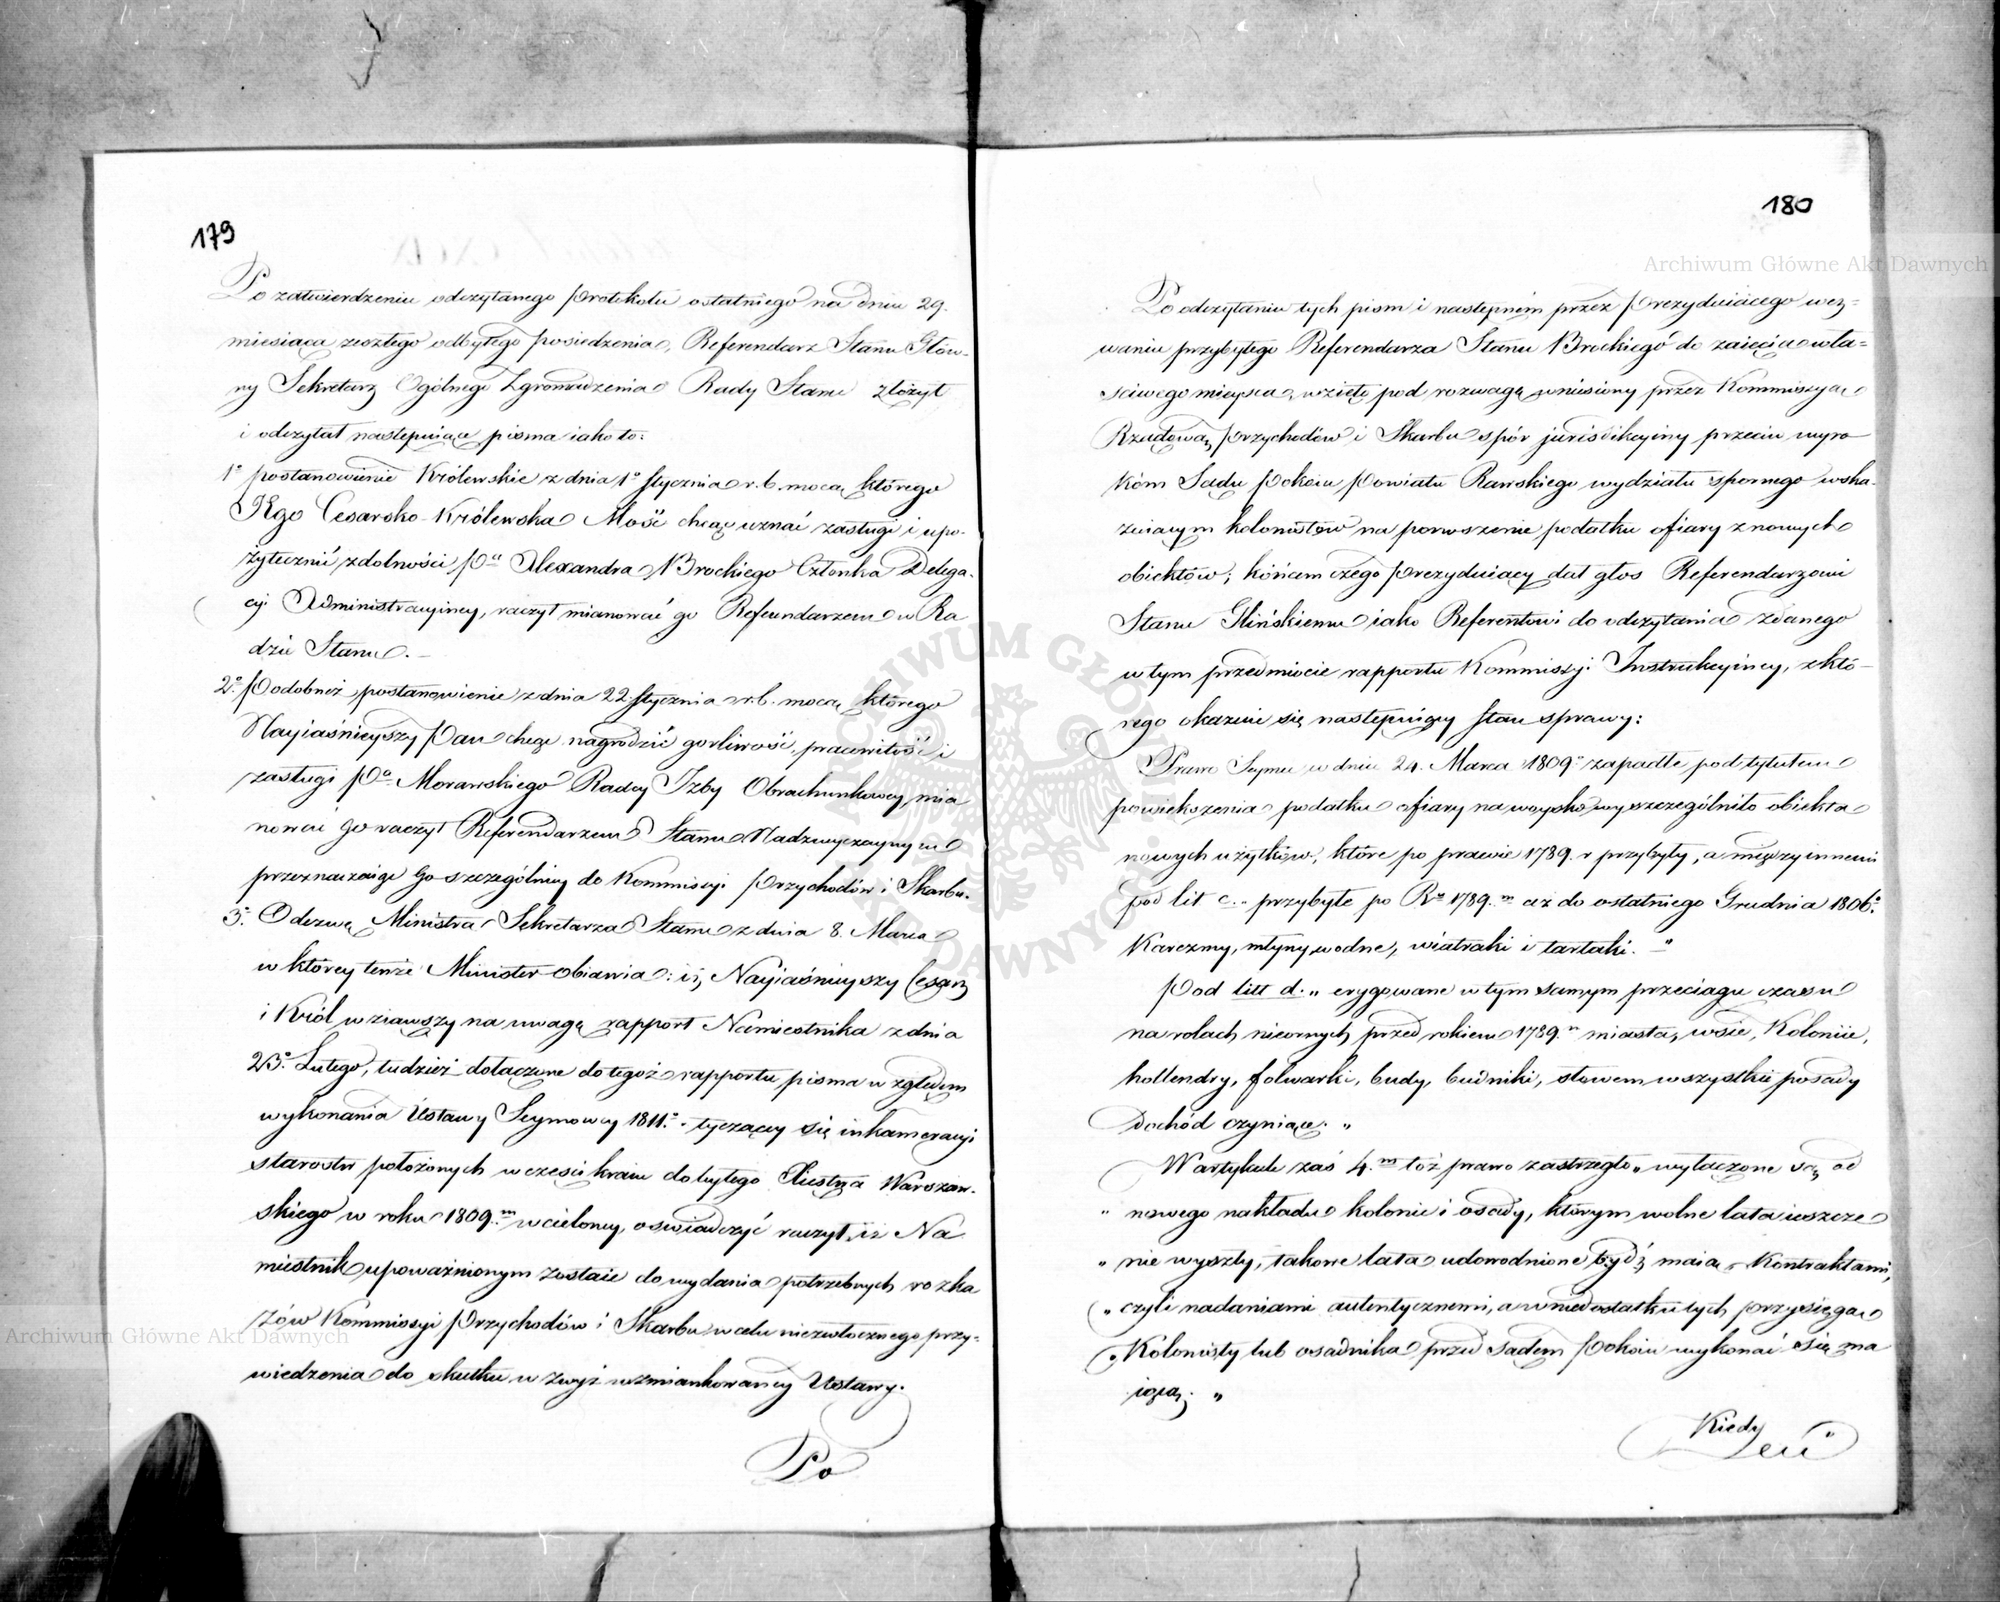 179
Po zatwierdzeniu odczytanego protokołu ostatniego na dniu 29.
miesiąca zeszłego odbytego posiedzenia, Referendarz Stanu Głów-
ny Sekretarz Ogólnego Zgromadzenia Rady Stanu złożył
i odczytał następuiące pisma iako to:
1° postanowienie Królewskie z dnia 1° stycznia r. b. mocą którego
JKgo Cesarsko-Królewska Mość chcąc uznać zasługi i upo-
żytecznić zdolności Pa Alexandra Brockiego Członka Delega-
cyi Administracyiney, raczył mianować go Referendarzem w Ra
dzie Stanu. —
2° Podobneż postanowienie z dnia 22 stycznia r. b. mocą którego
Nayiaśnieyszy Pan chcąc nagrodzić gorliwość, pracowitość i
zasługi Pa Morawskiego Radcy Izby Obrachunkowey, mia
nować go raczył Referendarzem Stanu Nadzwyczaynym
przeznaczaiąc Go szczególniey do Kommissyi Przychodów i Skarbu.
3° Odezwę Ministra Sekretarza Stanu z dnia 8. Marca
w którey tenże Minister obiawia: iż Nayiaśnieyszy Cesarz
i Król wziąwszy na uwagę rapport Namiestnika z dnia
23° Lutego, tudzież dołączone do tegoż rapportu pisma w względem
wykonania Ustawy Seymowey 1811° tyczącey się inkameracyi
starostw położonych w części kraiu do byłego Xięstwa Warszaw-
skiego w roku 1809m wcieloney, oświadczyć raczył, iż Na
miestnik upoważnionym zostaie do wydania potrzebnych rozka
zów Kommissyi Przychodów i Skarbu w celu niezwłocznego przy-
wiedzenia do skutku w zwyż wzmiankowaney Ustawy.
Po
180
Po odczytaniu tych pism i następnem przez Prezyduiącego wez-
waniu przybyłego Referendarza Stanu Brockiego do zaięcia wła-
ściwego mieysca, wzięto pod rozwagę wniesiony przez Kommissyą
Rządową Przychodów i Skarbu spór jurisdikcyiny przeciw wyro
kom Sądu Pokoiu Powiatu Rawskiego wydziału spornego wska-
zuiącym kolonistów na ponoszenie podatku ofiary z nowych
obiektów; końcem czego Prezyduiący dał głos Referendarzowi
Stanu Glińskiemu iako Referentowi do odczytania zdanego
w tym przedmiocie rapportu Kommissyi Instrukcyiney, z któ-
rego okazuie się następuiący stan sprawy:
Prawo Seymu w dniu 24. Marca 1809° zapadłe pod tytułem
powiększenia podatku ofiary na woysko wyszczególniło obiekta
nowych użytków, które po prawie 1789. r przybyły, a między innemi
pod lit c. „ przybyłe po Ru 1789.m aż do ostatniego Grudnia 1806°
Karczmy, młyny wodne, wiatraki i tartaki. — "
Pod litt d. „ erygowane w tym samym przeciągu czasu
na rolach nieornych przed rokiem 1789.m miasta, wsie, Kolonie,
hollendry, folwarki, budy, budniki, słowem wszystkie posady
Dochód czyniące. "
W artykule zaś 4.m toż prawo zastrzegło „ wyłączone są od
" nowego nakładu kolonie i osady, którym wolne lata ieszcze
" nie wyszły, takowe lata udowodnione bydź maią Kontraktami,
" czyli nadaniami autentycznemi, a w niedostatku tych przysięga
" Kolonisty lub osadnika przed sądem Pokoiu wykonać się ma
iąca. "
Kiedy
Archiwum Główne Akt Dawnych
Archiwum Główne Akt Dawnych
ARCHIWUM GŁÓWNE AKT DAWNYCH